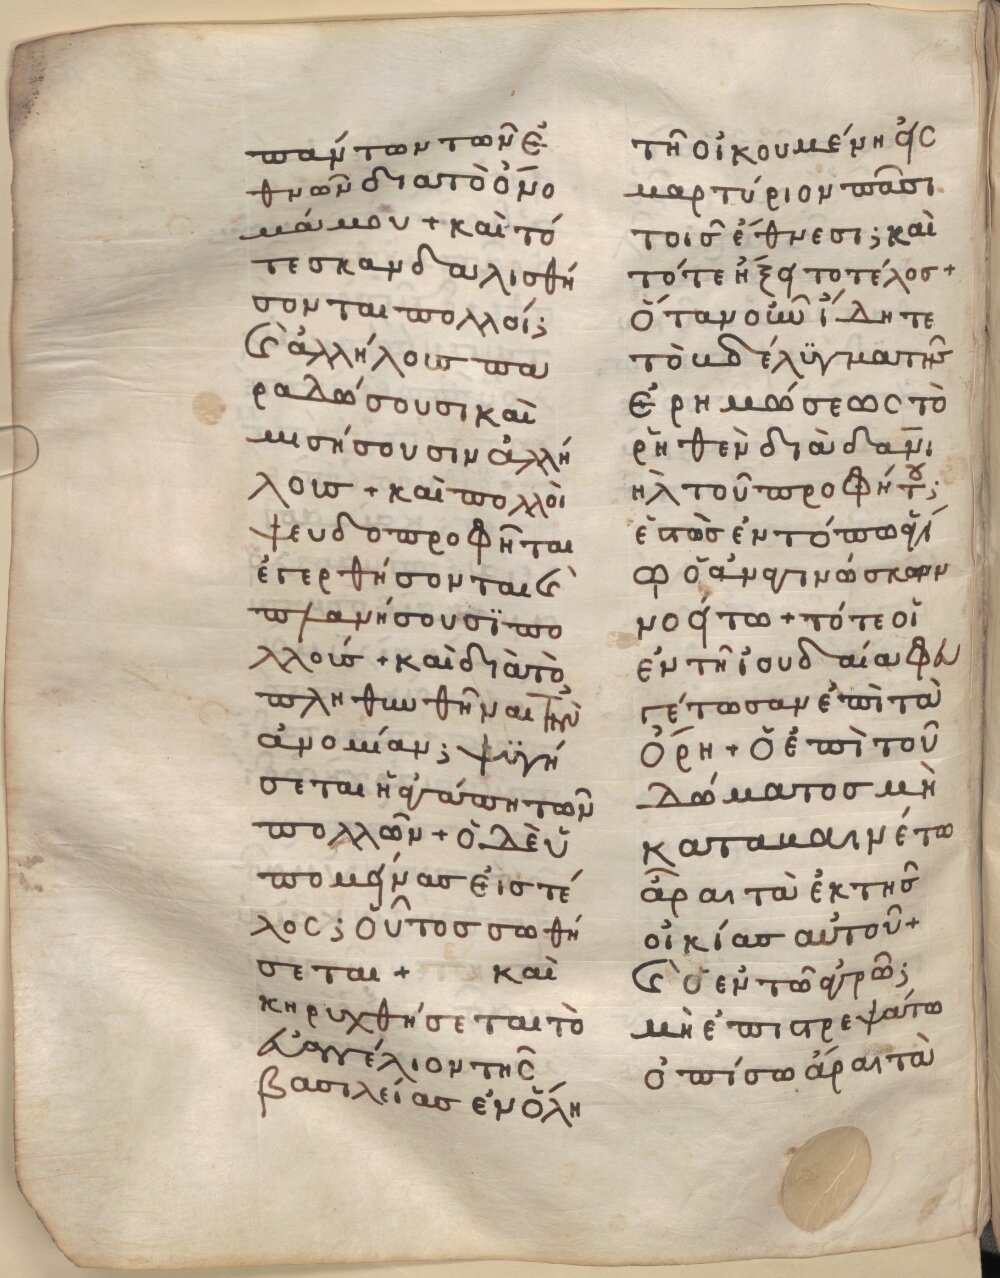 πάντων τῶν ἐ
θνῶν διατὸ ὄνο
μά μου + καὶ τό
τε σκανδαλισθή
σονται πολλοί;
κ̀ ἀλλήλους πα
ραδώσουσι καὶ
μισήσουσιν ἀλλή
λους + καὶ πολλοὶ
ψευδοπροφῆται
ἐγερθήσονται κ̀
πλανήσουσϊ πο
λλούς + καὶ διὰ τὸ
πληθυνθῆναι τὴν
ἀνομίαν; ψϋγή
σεται ἡ ἀγάπη τῶν
πολλῶν + ὁ δὲ ὑ
πομείνας εἰς τέ
λος; οὗτος σωθή
σεται + καὶ
κηρυχθήσεται τὸ
εὐαγγέλιον τῆς
βασιλείας ἐν ὅλη
τῆ οἰκουμένη εἰς
μαρτύριον πᾶσι
τοῖς ἔθνεσι; καὶ
τότε ἥξει τὸ τέλος +
ὅταν οὖν ἴδητε
τὸ βδέλϋγμα τῆς
ἐρημώσεως τὸ
ρηθὲν διὰ δανι
ὴλ τοῦ προφήτου;
ἑστὼς ἐν τόπω ἁγί
ω ὁ ἀναγινώσκων
νοείτω + τότε οἱ
ἐν τῆ ἰουδαία φευ
γέτωσαν ἐπὶ τὰ
ὄρη + ὁ ἐπὶ τοῦ
δώματος μὴ
καταβαινέτω
ἆραι τὰ ἐκ τῆς
οἰκίας αὐτοῦ +
κ̀ ὁ ἐν τῶ ἀγρῶ;
μὴ ἐπιστρεψάτω
ὀπίσω ἆραι τὰ